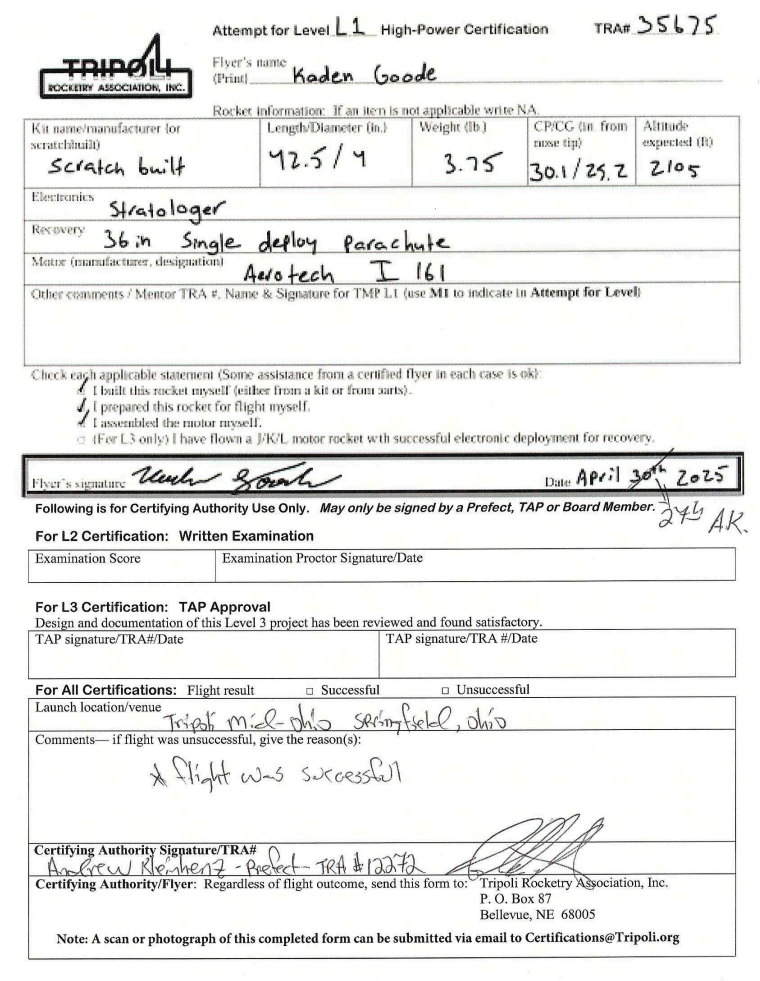 Attempt for Level L1 High-Power Certification TRA# 35675
TRIPOLI
ROCKETRY ASSOCIATION, INC.
Flyer's name
(Print) Kaden Goode
Rocket Information: If an item is not applicable write NA.
Kit name/manufacturer (or scratchbuilt) Length/Diameter (in.) Weight (lb.) CP/CG (in. from nose tip) Altitude expected (ft)
Scratch built 42.5/4 3.75 30.1/25.2 2105
Electronics Stratologer
Recovery 36 in Single deploy Parachute
Motor (manufacturer, designation) Aerotech I 161
Other comments / Mentor TRA #, Name & Signature for TMP L1 (use M1 to indicate in Attempt for Level)
Check each applicable statement (Some assistance from a certified flyer in each case is ok):
✓ I built this rocket myself (either from a kit or from parts).
✓ I prepared this rocket for flight myself.
✓ I assembled the motor myself.
□ (For L3 only) I have flown a J/K/L motor rocket with successful electronic deployment for recovery.
Flyer's signature Date April 30th 2025
27th A.K.
Following is for Certifying Authority Use Only. May only be signed by a Prefect, TAP or Board Member.
For L2 Certification: Written Examination
Examination Score Examination Proctor Signature/Date
For L3 Certification: TAP Approval
Design and documentation of this Level 3 project has been reviewed and found satisfactory.
TAP signature/TRA#/Date TAP signature/TRA #/Date
For All Certifications: Flight result □ Successful □ Unsuccessful
Launch location/venue Tripoli Mid-Ohio Springfield, Ohio
Comments— if flight was unsuccessful, give the reason(s):
* flight was successful
Certifying Authority Signature/TRA#
Andrew Kleinhenz - Prefect - TRA #12272
Certifying Authority/Flyer: Regardless of flight outcome, send this form to: Tripoli Rocketry Association, Inc.
P. O. Box 87
Bellevue, NE 68005
Note: A scan or photograph of this completed form can be submitted via email to Certifications@Tripoli.org